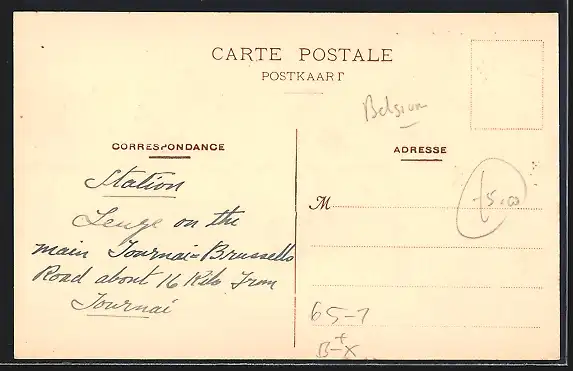 CARTE POSTALE
POSTKAART
Belgium
CORRESPONDANCE
ADRESSE
Station
Leuze on the
main Tournai=Brussells
Road about 16 Kilo from
Tournai
M
5.00
65-1
B-X